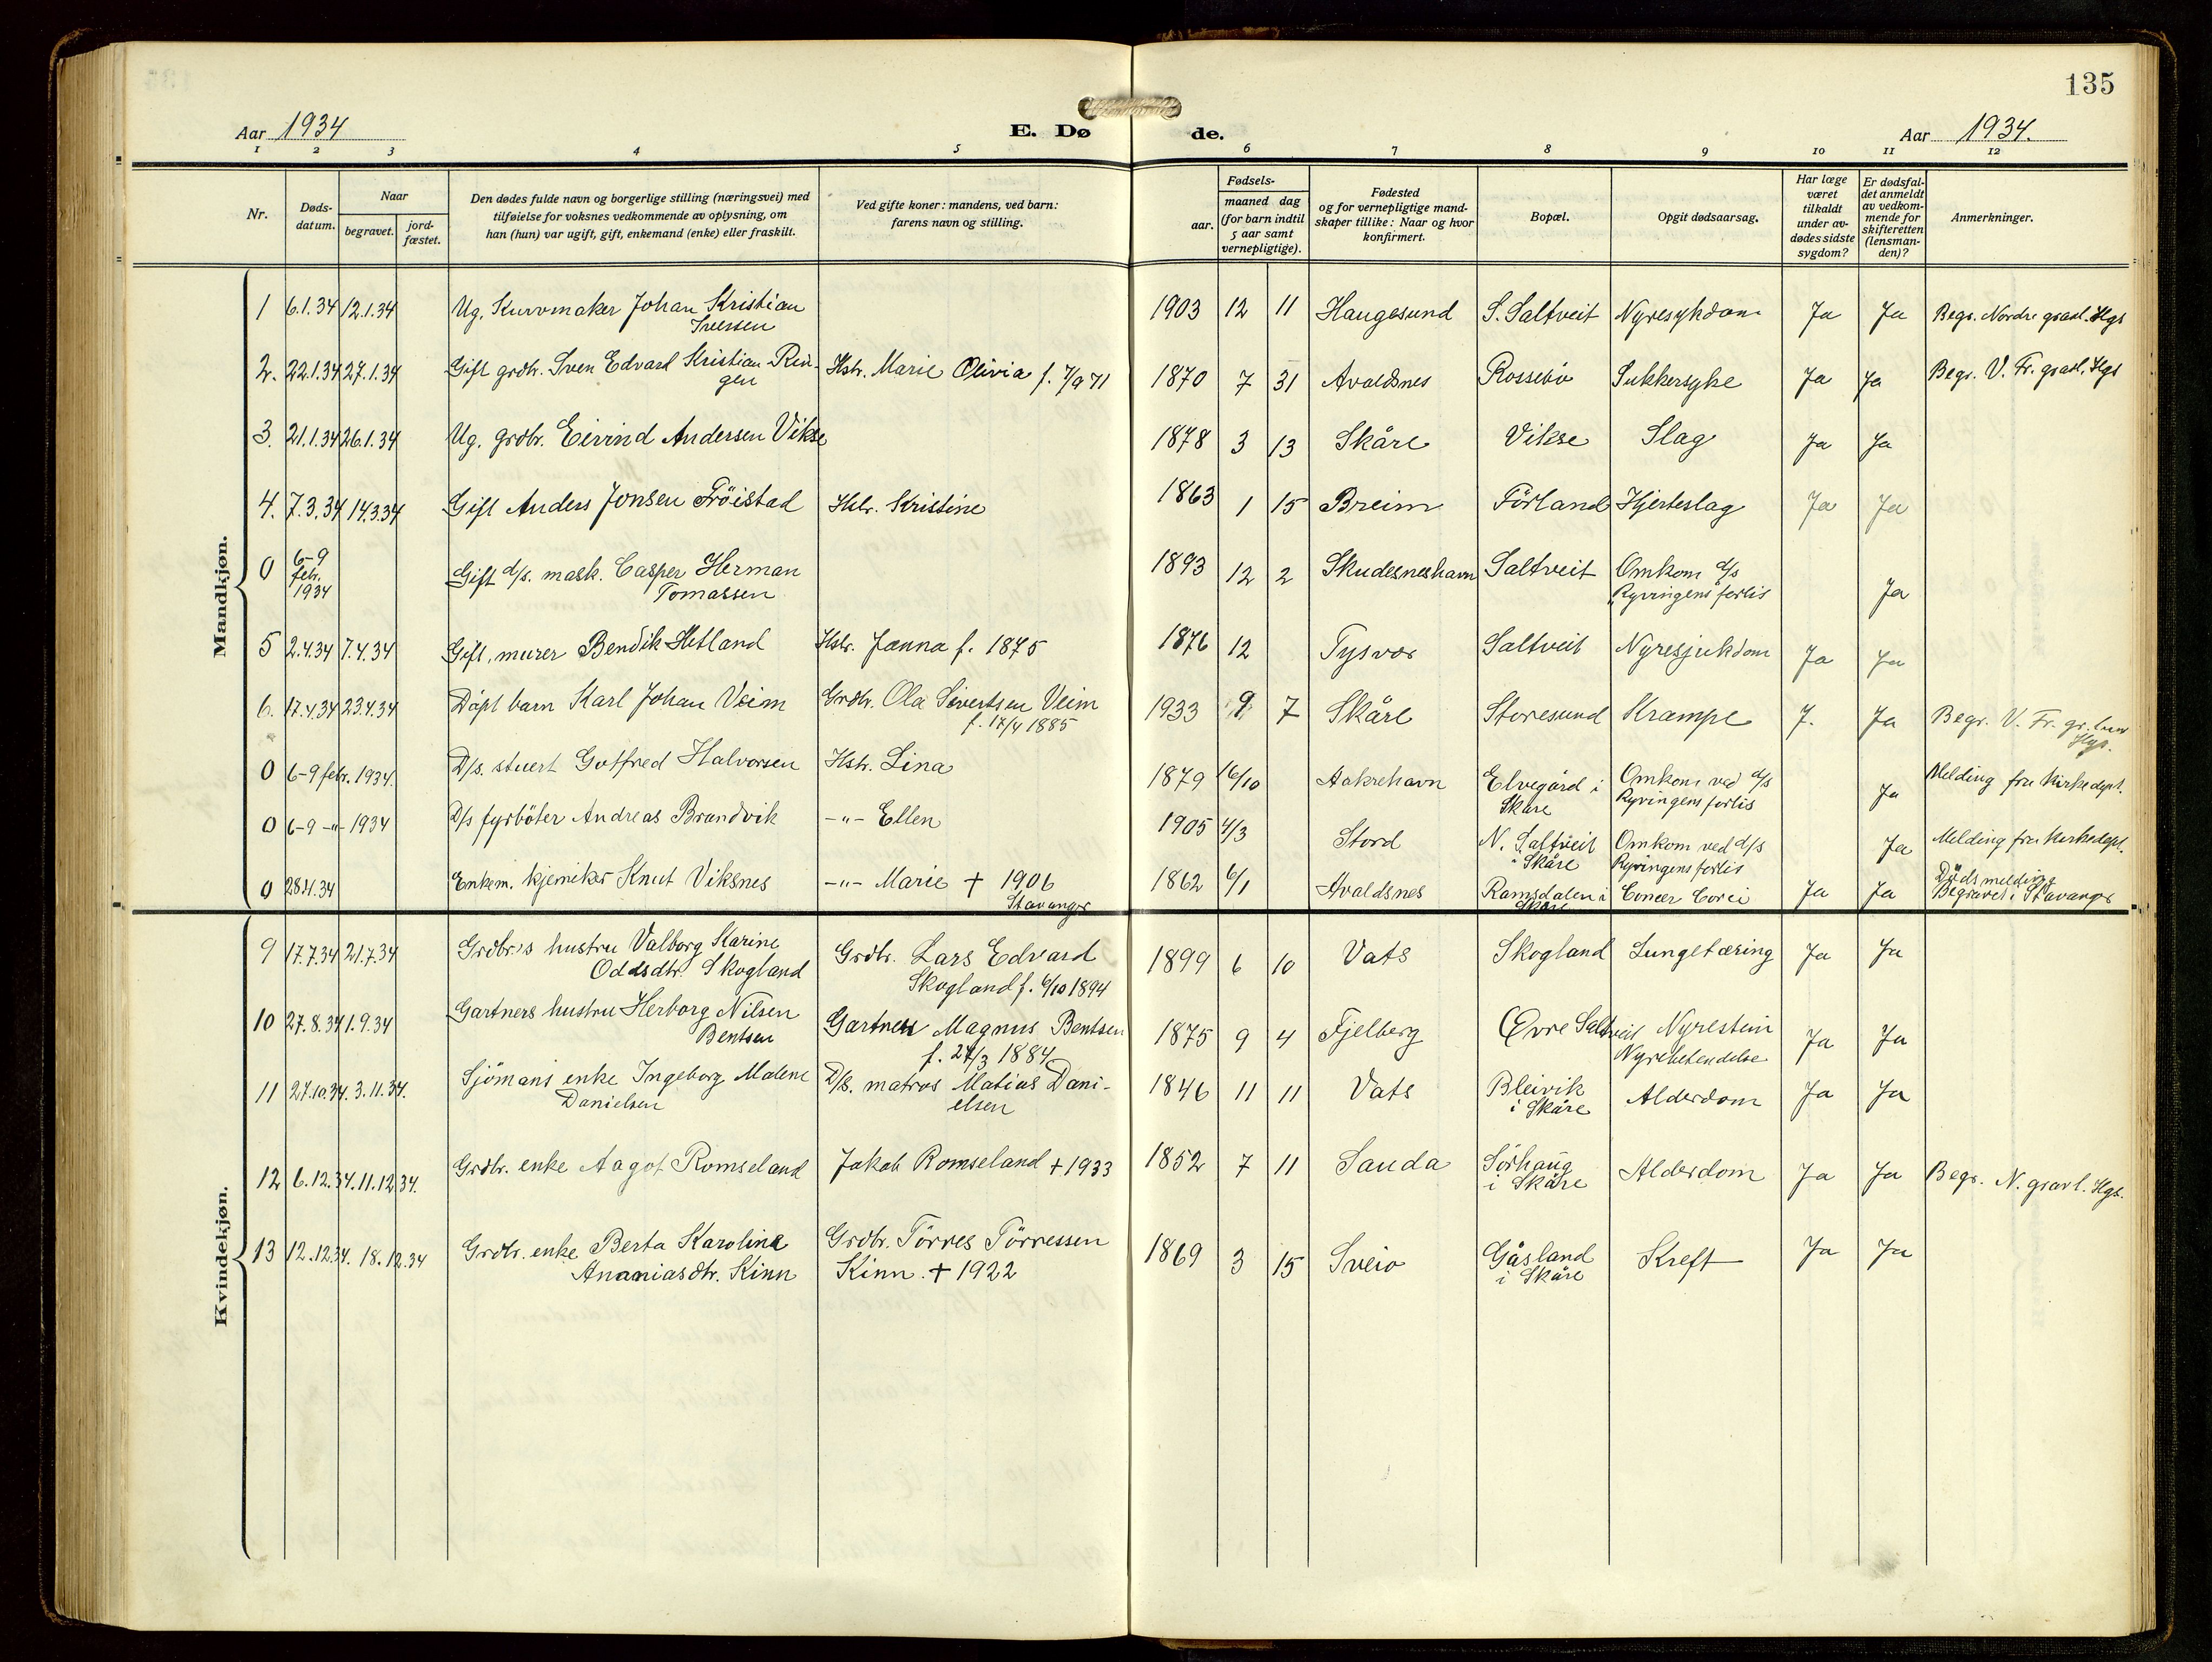 135
Aar 1934
E. Dø de.
Aar 1934.
1 2 3 4 5 6 7 8 9 10 11 12
Nr.
Døds-
datum.
Naar
begravet.
jord-
fæstet.
Den dødes fulde navn og borgerlige stilling (næringsvei) med
tilføielse for voksnes vedkommende av oplysning, om
han (hun) var ugift, gift, enkemand (enke) eller fraskilt.
Ved gifte koner: mandens, ved barn:
farens navn og stilling.
Fødsels-
aar.
maaned dag
(for barn indtil
5 aar samt
vernepligtige).
Fødested
og for vernepligtige mand-
skaper tillike: Naar og hvor
konfirmert.
Bopæl.
Opgit dødsaarsag.
Har læge
været
tilkaldt
under av-
dødes sidste
sygdom?
Er dødsfal-
det anmeldt
av vedkom-
mende for
skifteretten
(lensman-
den)?
Anmerkninger.
Mandkjøn.
1 6.1.34 12.1.34 Ug. Kurvmaker Johan Kristian
Iversen
1903 12 11 Haugesund S. Saltveit Nyresykdom Ja Ja Begr. Nordre gravl. Hgs
2. 22.1.34 27.1.34 Gift grdbr. Sven Edvard Kristian Rein-
gen
Hstr. Marie Olivia f. 7/9 71 1870 7 31 Avaldsnes Rossebø Sukkersyke Ja Ja Begr. V. Fr. gravl. Hgs
3. 21.1.34 26.1.34 Ug. grdbr. Eivind Andersen Vikse 1878 3 13 Skåre Vikse Slag Ja Ja
4. 7.3.34 14.3.34 Gift Anders Jonsen Tröistad Hstr. Kristine 1863 1 15 Breim Förland Hjerteslag Ja Ja
0 6-9
febr.
1934
Gift d/s. mask. Casper Herman
Tomassen
1893 12 2 Skudesneshavn Saltveit Omkom d/s
"Ryvingens forlis
Ja
5 2.4.34 7.4.34 Gift, murer Bendik Hetland Hstr. Janna f. 1875 1876 12 Tysvær Saltveit Nyresjukdom Ja Ja
6. 17.4.34 23.4.34 Döpt barn Karl Johan Veim Grdbr. Ola Sivertsen Veim
f. 17/4 1885
1933 9 7 Skåre Storesund Krampe J. Ja Begr. V. Fr. gr.
Hgs.
0 6-9 febr. 1934. D/s. stuert Gotfred Halvorsen Hstr. Lina 1879 16/10 Aakrehavn Elvegård i
Skåre
Omkom ved d/s
Ryvingens forlis
Ja Melding fra Kirkedept.
0 6-9 -"- 1934 D/s fyrböter Andreas Brandvik -"- Ellen 1905 4/3 Stord N. Saltveit
i Skåre
Omkom ved d/s
Ryvingens forlis
Ja Melding fra Kirkedept.
0 28.4.34 Enkem. kjemiker Knut Viksnes -"- Marie + 1906
Stavanger
1862 6/1 Avaldsnes Ramsdalen i
Skåre
Cancer Ja Ja Dödsmelding
Begravet i Stavanger
Kvindekjøn.
9 17.7.34 21.7.34 Grdbr's hustru Valborg Karine
Oddsdtr. Skogland
Grdbr. Lars Edvard
Skogland f. 6/10 1894
1899 6 10 Vats Skogland Lungetæring Ja Ja
10 27.8.34 1.9.34 Gartners hustru Herborg Nilsen
Bentsen
Gartner Magnus Bentsen
f. 24/3 1884
1875 9 4 Fjelberg Övre Saltveit Nyrestein
Nyrebetendelse
Ja Ja
11 27.10.34. 3.11.34. Sjömans enke Ingeborg Malene
Danielsen
D/s. matros Matias Dani-
elsen
1846 11 11 Vats Bleivik
i Skåre
Alderdom Ja Ja
12 6.12.34. 11.12.34. Grdbr. enke Aagot Romseland Jakob Romseland + 1933 1852 7 11 Sauda Sörhaug
i Skåre
Alderdom Ja Ja Begr. N. gravl. Hgs.
13 12.12.34. 18.12.34 Grdbr. enke Berta Karoline
Ananiasdtr. Kinn
Grdbr. Törres Törressen
Kinn. + 1922
1869 3 15 Sveio Gåsland
i Skåre
Kreft Ja Ja